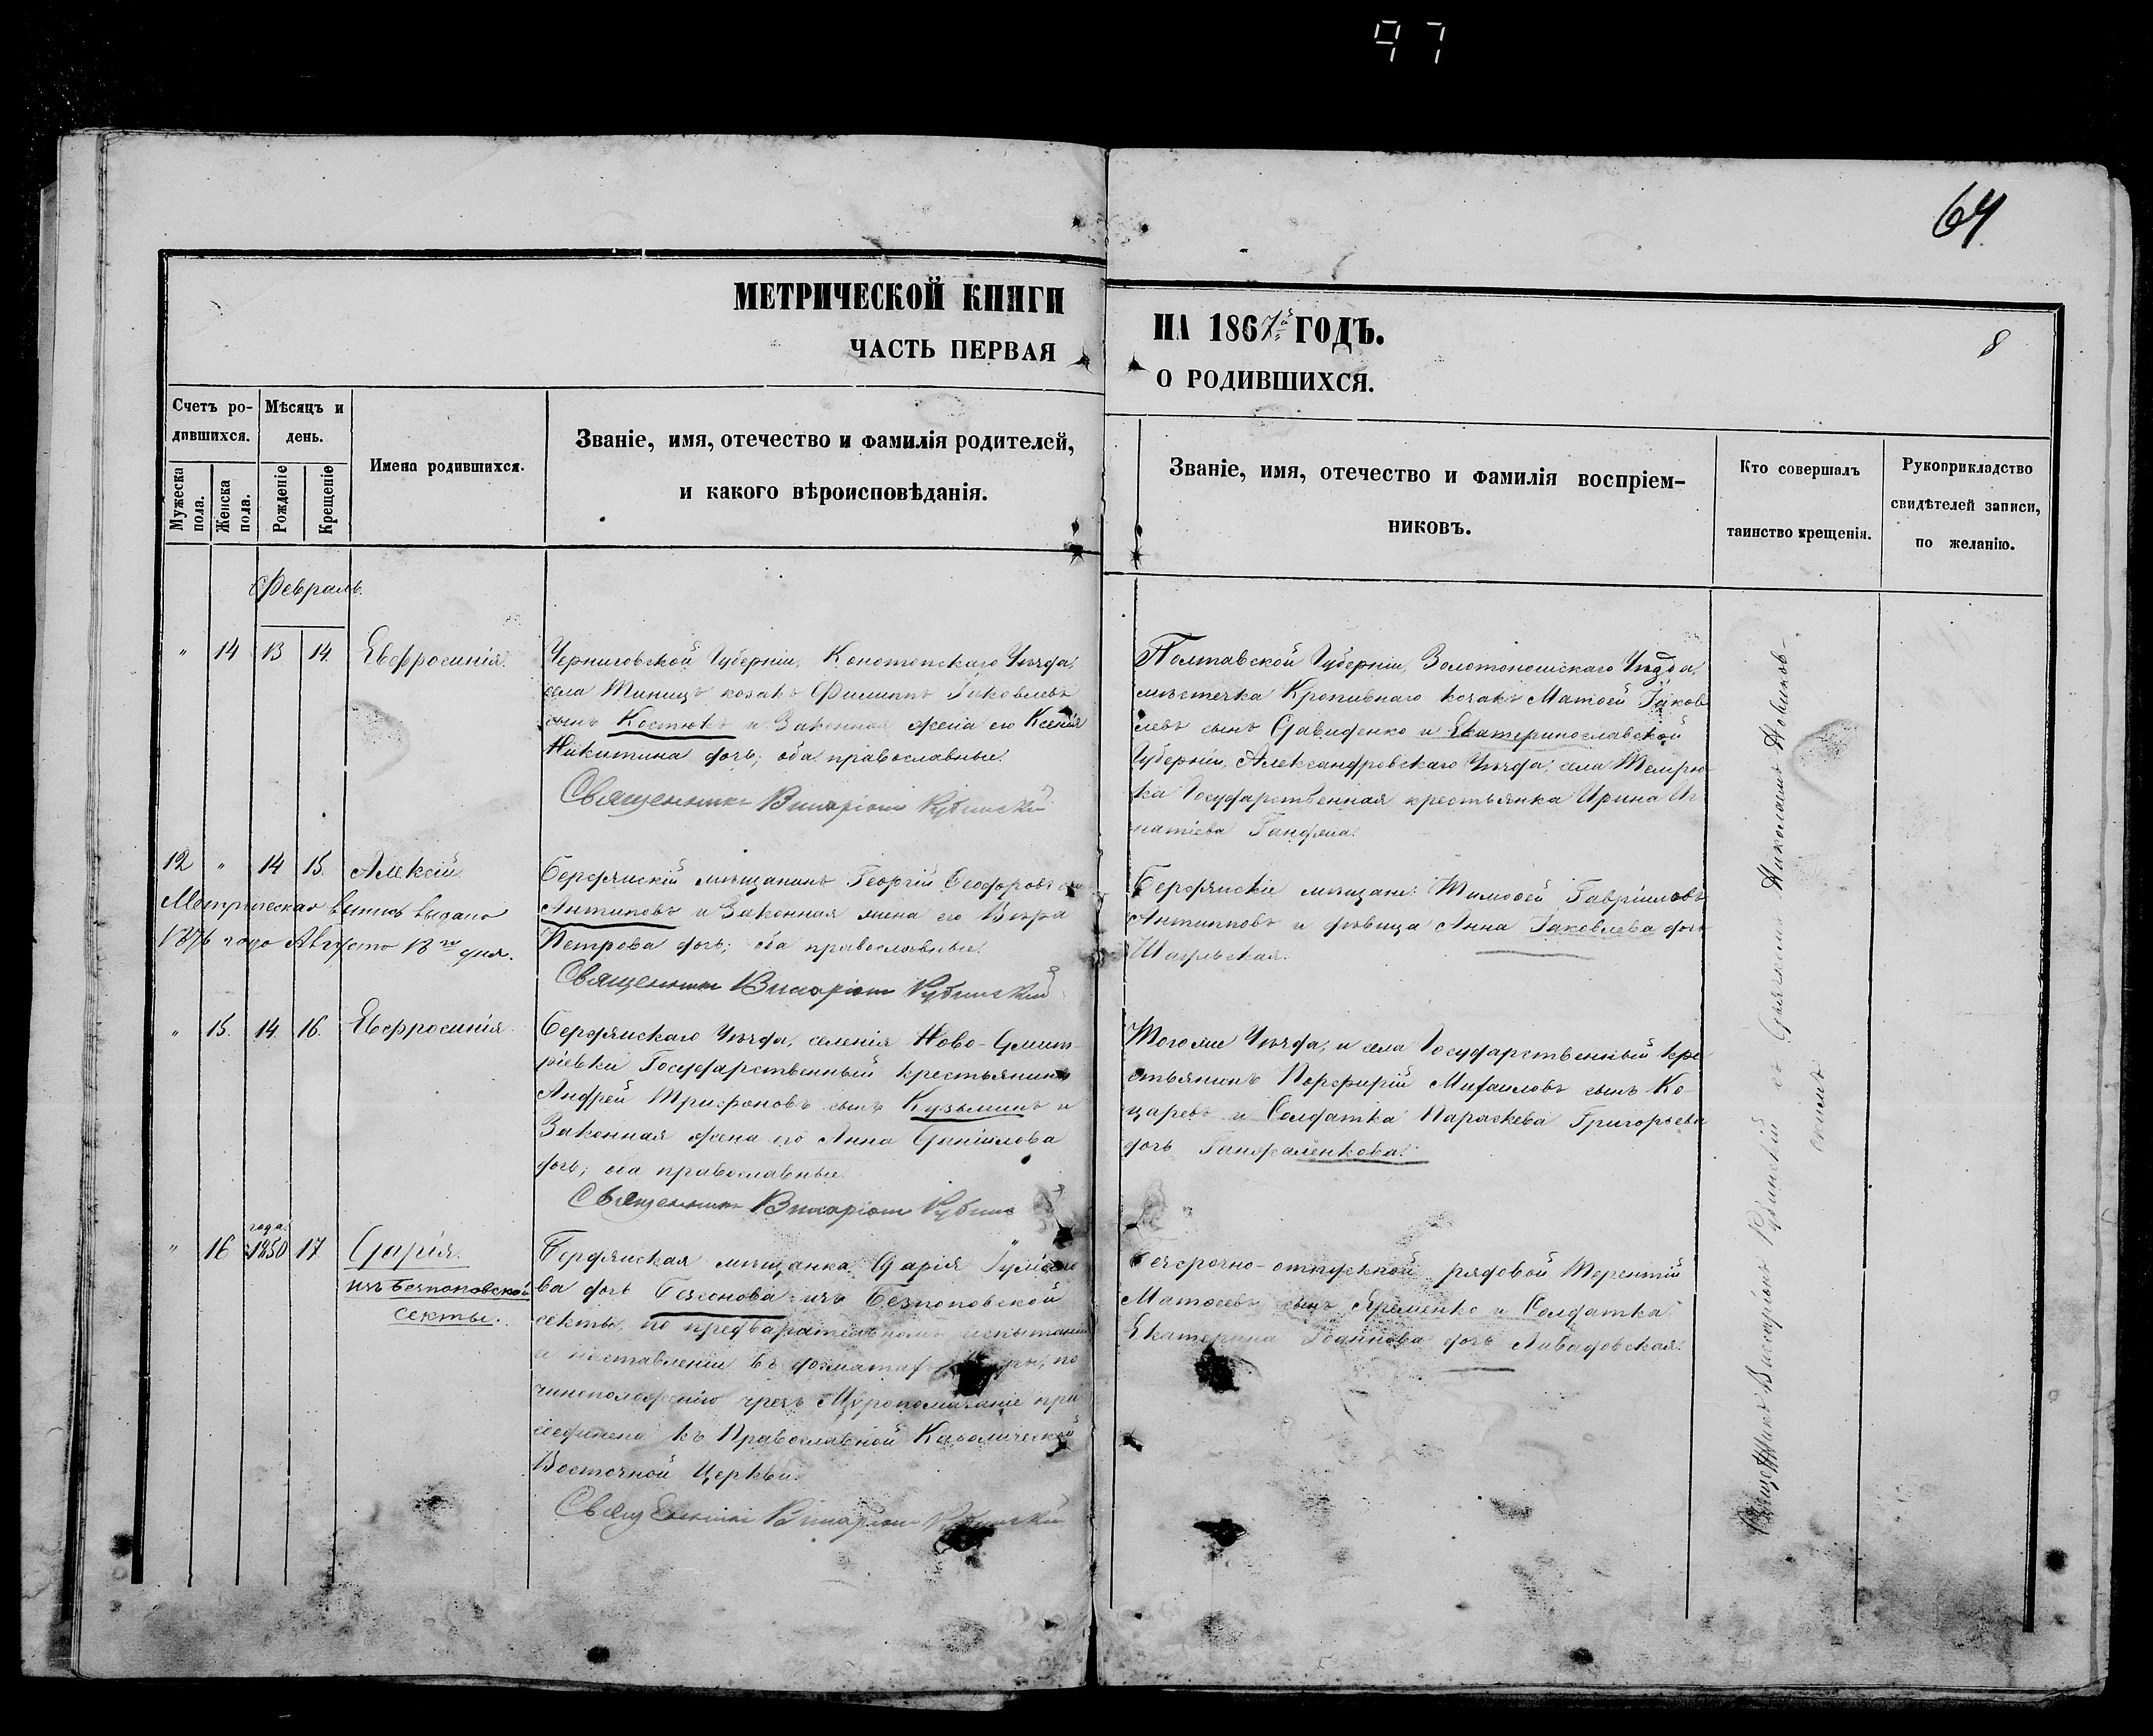 97
64
МЕТРИЧЕСКОЙ КНИГИ
ЧАСТЬ ПЕРВАЯ
НА 1867й ГОДЪ.
О РОДИВШИХСЯ.
8
Счетъ ро-
дившихся.
Мужеска пола.
Женска пола.
Мѣсяцъ и
день.
Рожденіе
Крещеніе
Имена родившихся.
Званіе, имя, отечество и фамилія родителей,
и какого вѣроисповѣданія.
Званіе, имя, отечество и фамилія воспріем-
никовъ.
Кто совершалъ
таинство крещенія.
Рукоприкладство
свидѣтелей записи,
по желанію.
Февраль.
" 14 13 14. Евфросинія.
Черниговской Губерніи, Конотопскаго Уѣзда,
села Тиницъ козакъ Филиппъ Іаковлевъ
сынъ Костюкъ и Законная жена его Ксенія
Никитина дочь; оба православные.
Священникъ Виссаріонъ Рубинскій
Полтавской Губерніи, Золотоношскаго Уѣзда,
мѣстечка Кропивнаго козакъ Матѳей Іаков
левъ сынъ Давиденко и Екатеринославской
Губерніи, Александровскаго Уѣзда, села Темрю
ка Государственная крестьянка Ирина Иг
натіева
12 " 14 15. Алексій
Метрическая выпись выдана
1876 года Августа 13го дня.
Бердянскій мѣщанинъ Георгій Ѳеодоровъ
Антиповъ и Законная жена его Вѣра
Петрова дочь; оба православные.
Священникъ Виссаріонъ Рубинскій
Бердянскіе мѣщане: Тимоѳей Гавріиловъ
Антиповъ и дѣвица Анна Іаковлева дочь
" 15. 14. 16. Евфросинія
Бердянскаго Уѣзда, селенія Ново-Дмит-
ріевки Государственный крестьянинъ
Андрей Трифоновъ сынъ Кузьминъ и
Законная жена его Анна Даніилова
дочь; оба православные.
Священникъ Виссаріонъ Рубинс
Тогоже Уѣзда, и села Государственный кре
стьянинъ Порфирій Михаиловъ сынъ Ко
царевъ и Солдатка Параскева Григорьева
дочь
" 16 года 1850 17 Дарія.
изъ безпоповской
секты.
Бердянская мѣщанка Дарія
ва дочь изъ Безпоповской
секты, по предварательномъ испытаніи
и наставленіи въ догматахъ вѣры, по
чиноположенію чрезъ Мѵропомазаніе при
соединена къ Православной Каѳолической
Восточной Церкви.
Священникъ Виссаріонъ Рубинскій
Безсрочно-отпускной рядовой Терентій
Матѳеевъ сынъ Яременко и Солдатка
Екатерина Іоаннова дочь Ливадовская.
Священникъ Виссаріонъ Рубинскій съ Дьячкомъ Николаемъ Новиков-
скимъ